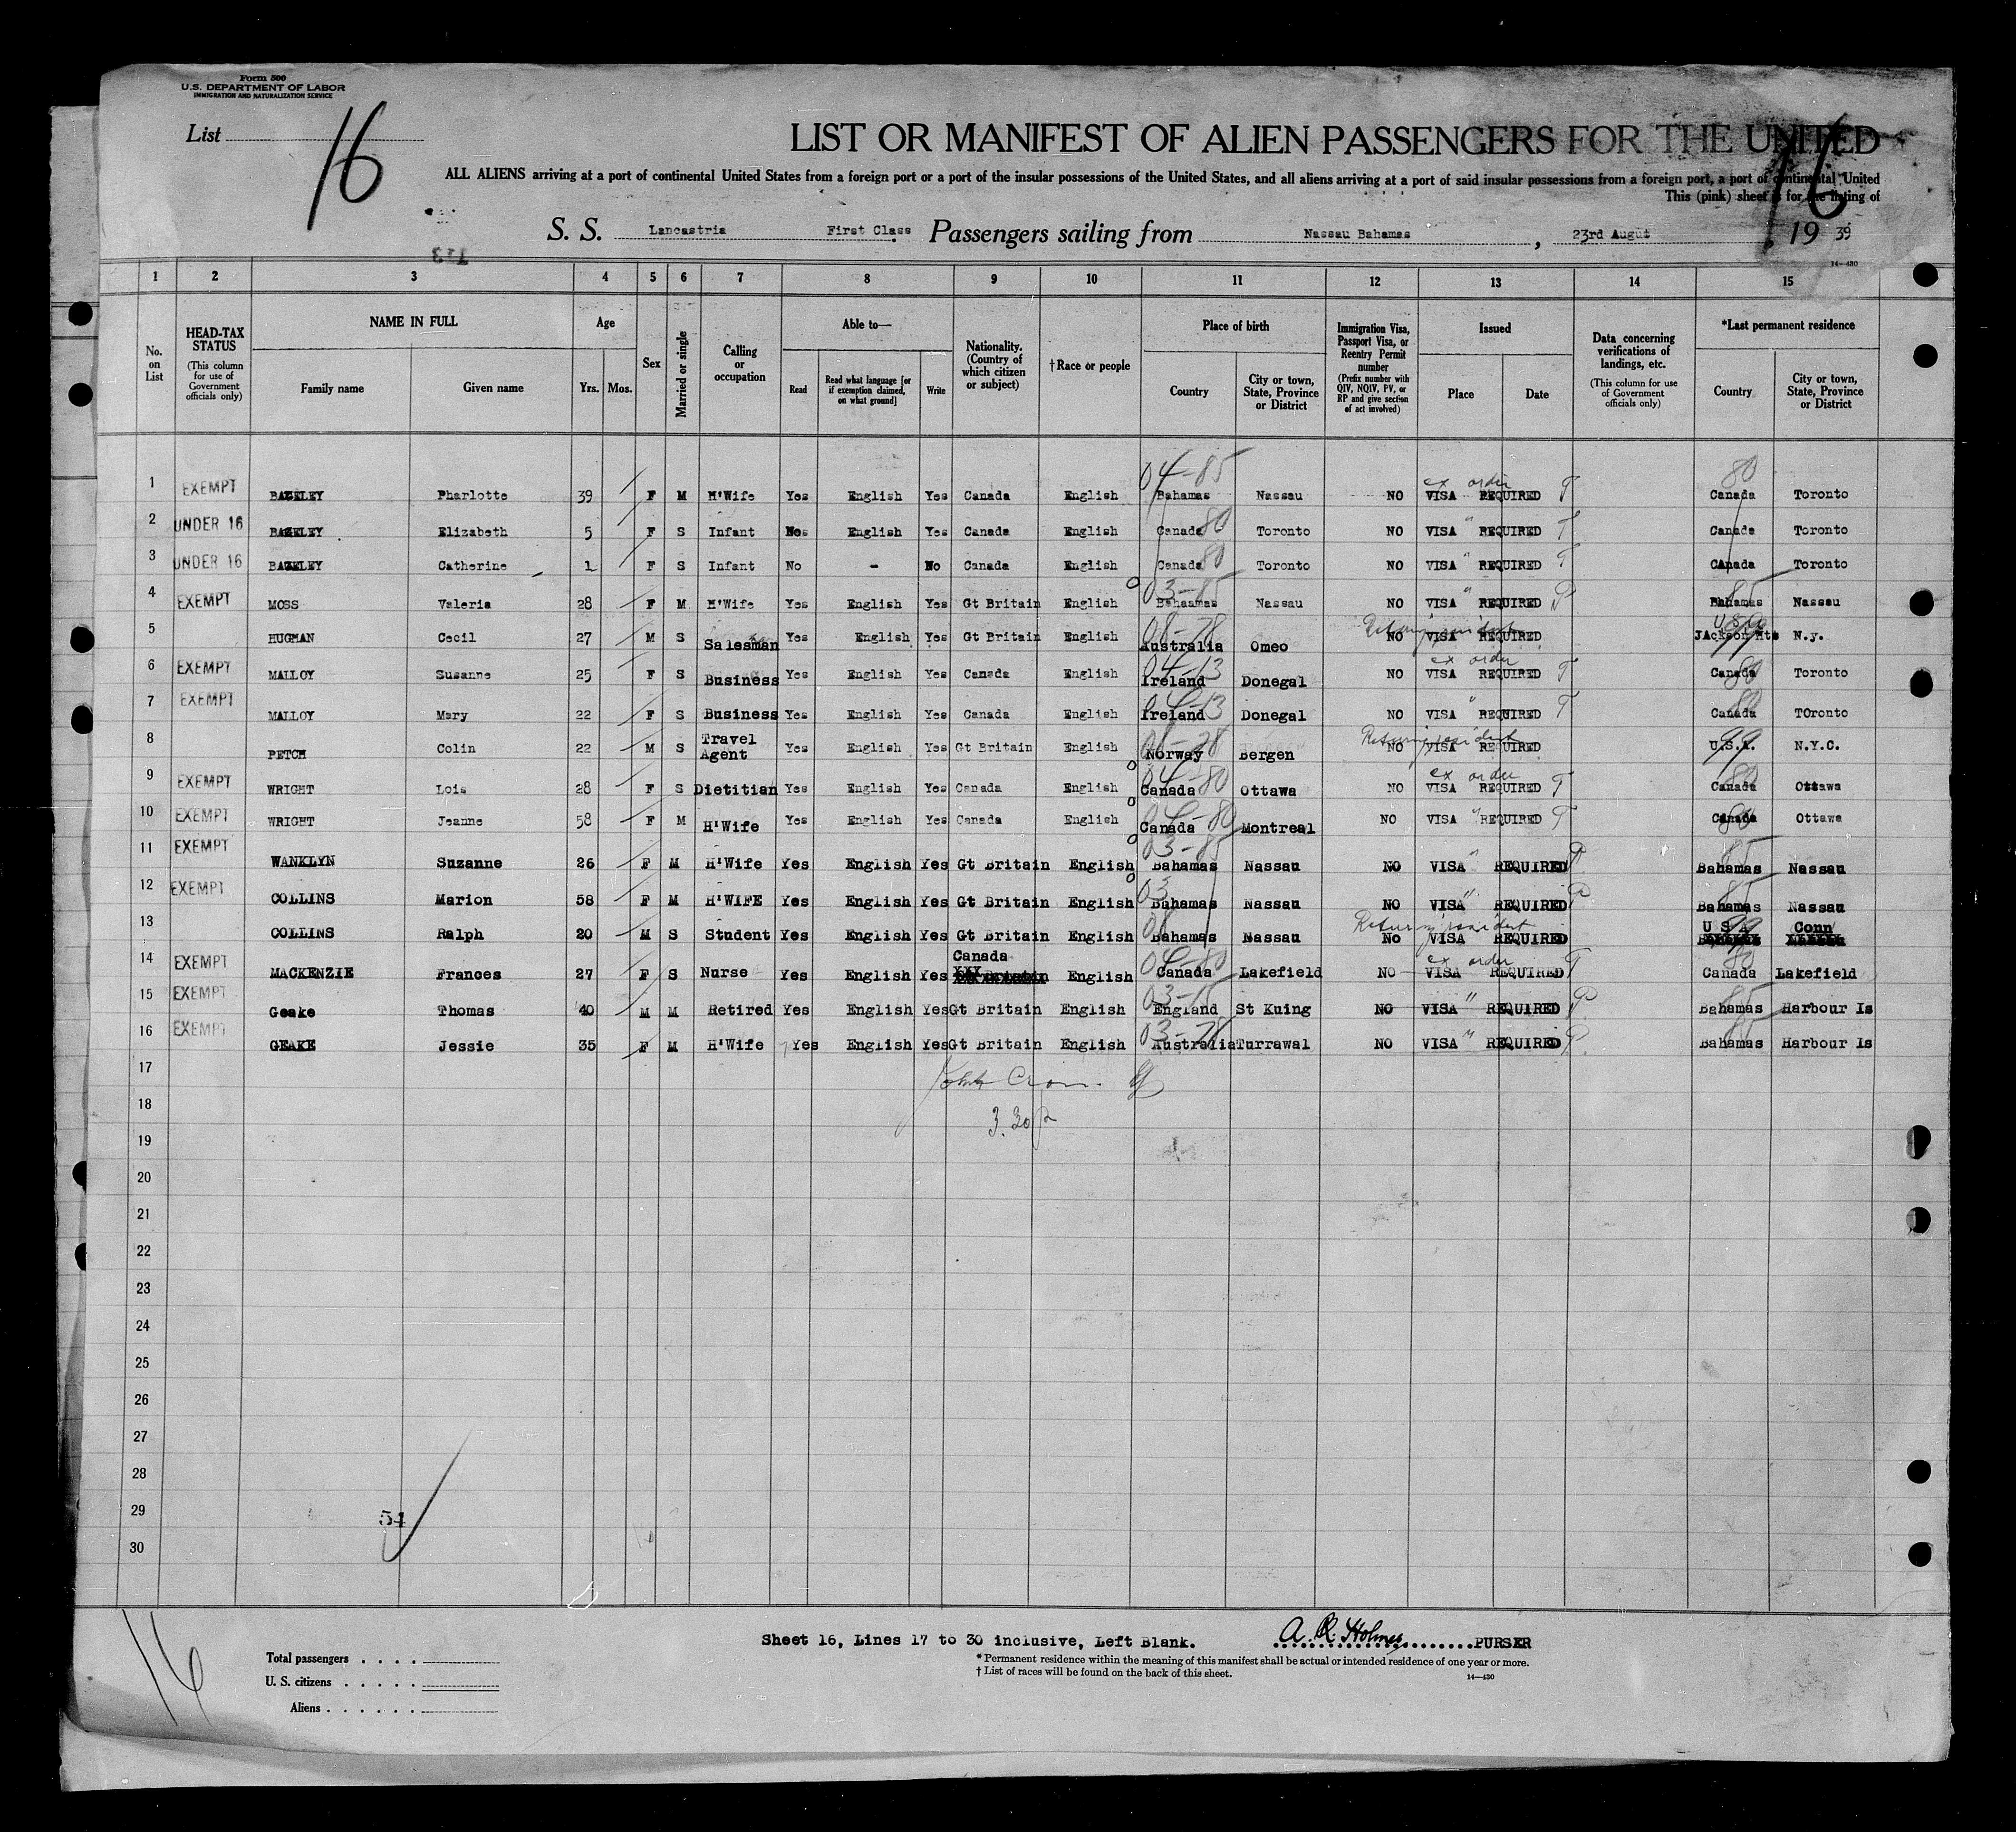 Form 500
U.S. DEPARTMENT OF LABOR
IMMIGRATION AND NATURALIZATION SERVICE
List 16
LIST OR MANIFEST OF ALIEN PASSENGERS FOR THE UNITED
16
ALL ALIENS arriving at a port of continental United States from a foreign port or a port of the insular possessions of the United States, and all aliens arriving at a port of said insular possessions from a foreign port, a port of continental United
This (pink) sheet is for the listing of
S. S. Lancastria First Class Passengers sailing from Nassau Bahamas, 23rd Augut, 19 39
14-430
1 2 3 4 5 6 7 8 9 10 11 12 13 14 15
No. on List
HEAD-TAX STATUS (This column for use of Government officials only)
NAME IN FULL
Family name Given name
Age
Yrs. Mos.
Sex
Married or single
Calling or occupation
Able to—
Read Read what language [or if exemption claimed, on what ground] Write
Nationality. (Country of which citizen or subject)
†Race or people
Place of birth
Country City or town, State, Province or District
Immigration Visa, Passport Visa, or Reentry Permit number (Prefix number with QIV, NQIV, PV, or RP and give section of act involved)
Issued
Place Date
Data concerning verifications of landings, etc. (This column for use of Government officials only)
*Last permanent residence
Country City or town, State, Province or District
04-85 ex order 80
1 EXEMPT BAZELEY Pharlotte 39 F M H'Wife Yes English Yes Canada English Bahamas Nassau NO VISA REQUIRED T Canada Toronto
2 UNDER 16 BAZELEY Elizabeth 5 F S Infant English Yes Canada English Canada 80 Toronto NO VISA " REQUIRED T Canada Toronto
3 UNDER 16 BAZELEY Catherine 1 F S Infant No - No Canada English Canada 80 Toronto NO VISA " REQUIRED T CAnada Toronto
03-85 85
4 EXEMPT MOSS Valeria 28 F M H'Wife Yes English Yes Gt Britain English Bahaamas Nassau NO VISA " REQUIRED P Bahamas Nassau
08-78 Returning resident USA
5 HUGMAN Cecil 27 M S Salesman Yes English Yes Gt Britain English Australia Omeo NO VISA REQUIRED JAckson Hts N.y.
04-13 ex order 80
6 EXEMPT MALLOY Susanne 25 F S Business Yes English Yes Canada English Ireland Donegal NO VISA REQUIRED T Canada Toronto
04-13 80
7 EXEMPT MALLOY Mary 22 F S Business Yes English Yes Canada English Ireland Donegal NO VISA " REQUIRED T Canada TOronto
08-28 Returning resident 99
8 PETCH Colin 22 M S Travel Agent Yes English Yes Gt Britain English Norway Bergen NO VISA REQUIRED U.S.A. N.Y.C.
04-80 ex order 80
9 EXEMPT WRIGHT Lois 28 F S Dietitian Yes English Yes Canada English Canada Ottawa NO VISA REQUIRED T Canada Ottawa
04-80 80
10 EXEMPT WRIGHT Jeanne 58 F M H'Wife Yes English Yes Canada English Canada Montreal NO VISA " REQUIRED T Canada Ottawa
03-85 85
11 EXEMPT WANKLYN Suzanne 26 F M H'Wife Yes English Yes Gt Britain English Bahamas Nassau NO VISA " REQUIRED P Bahamas Nassau
03 85
12 EXEMPT COLLINS Marion 58 F M H'WIFE Yes English Yes Gt Britain English Bahamas Nassau NO VISA " REQUIRED P Bahamas Nassau
08 Returning resident 99
13 COLLINS Ralph 20 M S Student Yes English Yes Gt Britain English Bahamas Nassau No VISA REQUIRED U S A Conn
04-80 ex order 80
14 EXEMPT MACKENZIE Frances 27 F S Nurse Yes English Yes Canada English Canada Lakefield NO VISA REQUIRED T Canada Lakefield
03-15 85
15 EXEMPT Geake Thomas 40 M M Retired Yes English Yes Gt Britain English England St Kuing NO VISA " REQUIRED P Bahamas Harbour Is
03-78 85
16 EXEMPT GEAKE Jessie 35 F M H'Wife Yes English Yes Gt Britain English Australia Turrawal NO VISA " REQUIRED P Bahamas Harbour Is
17
18 3.30 p
19
20
21
22
23
24
25
26
27
28
29 54
30
16
Sheet 16, Lines 17 to 30 inclusive, Left Blank. A. R. Holmes PURSER
Total passengers
U. S. citizens
Aliens
* Permanent residence within the meaning of this manifest shall be actual or intended residence of one year or more.
† List of races will be found on the back of this sheet.
14-430